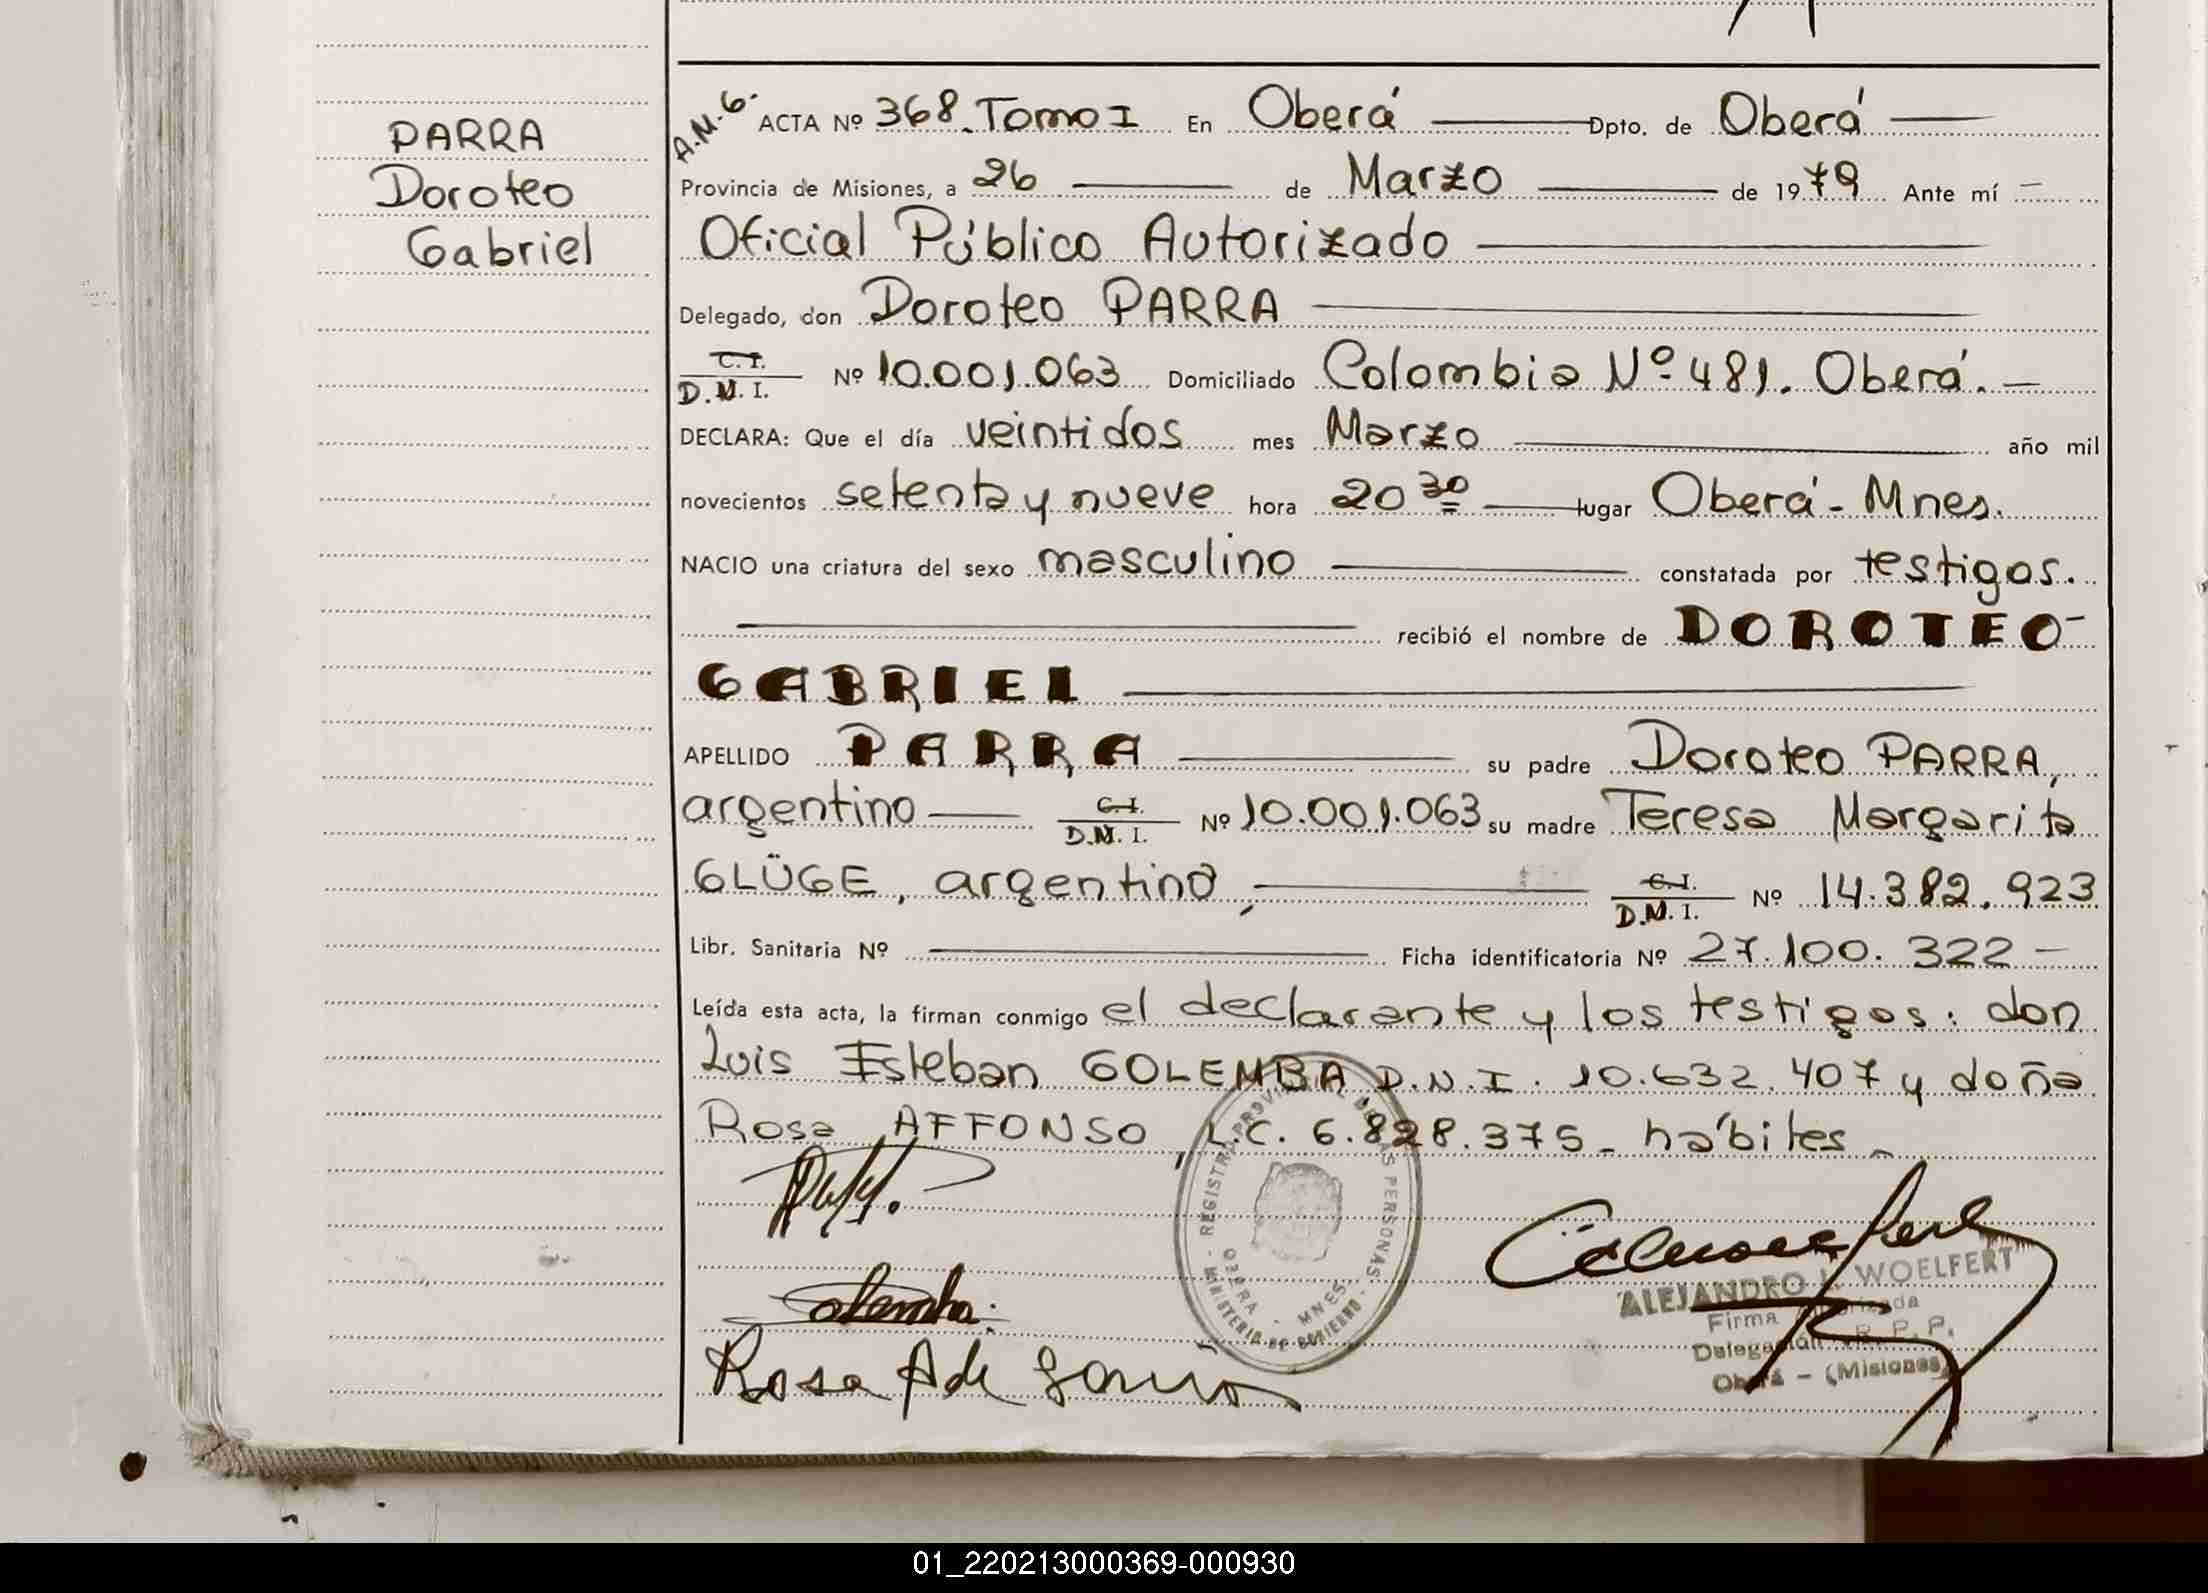 PARRA
Doroteo
Gabriel
A.M.G.
ACTA Nº 368. Tomo I En Oberá Dpto. de Oberá
Provincia de Misiones, a 26 de Marzo de 1979 Ante mí
Oficial Público Autorizado
Delegado, don Doroteo PARRA
C.I.
D.N.I. Nº 10.001.063 Domiciliado Colombia Nº 481. Oberá.
DECLARA: Que el día veintidos mes Marzo año mil
novecientos setenta y nueve hora 20 30 lugar Oberá - Mnes.
NACIO una criatura del sexo masculino constatada por testigos.
recibió el nombre de DOROTEO
GABRIEL
APELLIDO PARRA su padre Doroteo PARRA,
argentino C.I. D.N.I. Nº 10.001.063 su madre Teresa Margarita
GLÜGE, argentina, C.I. D.N.I. Nº 14.382.923
Libr. Sanitaria Nº Ficha identificatoria Nº 27.100.322 -
Leída esta acta, la firman conmigo el declarante y los testigos: don
Luis Esteban GOLEMBA, D.N.I. 10.632.407 y doña
Rosa AFFONSO, L.C. 6.828.375_ hábiles_
REGISTRO PROVINCIAL DE LAS PERSONAS
OBERA - MNES
MINISTERIO DE GOBIERNO
Golemba.
Rosa A de
ALEJANDRO L. WOELFERT
Firma Autorizada
Delegación R. P. P.
Oberá - (Misiones)
01_220213000369-000930